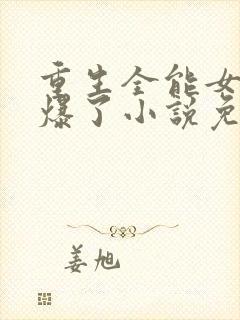 重生全能女
爆了小説免
姜旭